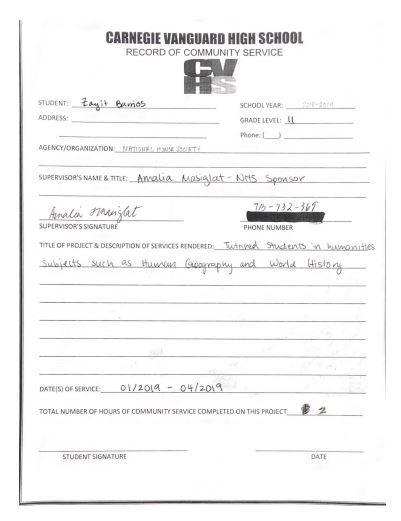 CARNEGIE VANGUARD HIGH SCHOOL
RECORD OF COMMUNITY SERVICE
CV
HS
STUDENT: Zayit Barrios SCHOOL YEAR: 2018-2019
ADDRESS: GRADE LEVEL: 11
Phone: ( )
AGENCY/ORGANIZATION: NATIONAL HONOR SOCIETY
SUPERVISOR'S NAME & TITLE: Amalia Masiglat - NHS Sponsor
Amalia Masiglat
SUPERVISOR'S SIGNATURE PHONE NUMBER
TITLE OF PROJECT & DESCRIPTION OF SERVICES RENDERED: Tutored Students in humanities
subjects such as Human Geography and World History
DATE(S) OF SERVICE: 01/2019 - 04/2019
TOTAL NUMBER OF HOURS OF COMMUNITY SERVICE COMPLETED ON THIS PROJECT 2
STUDENT SIGNATURE DATE